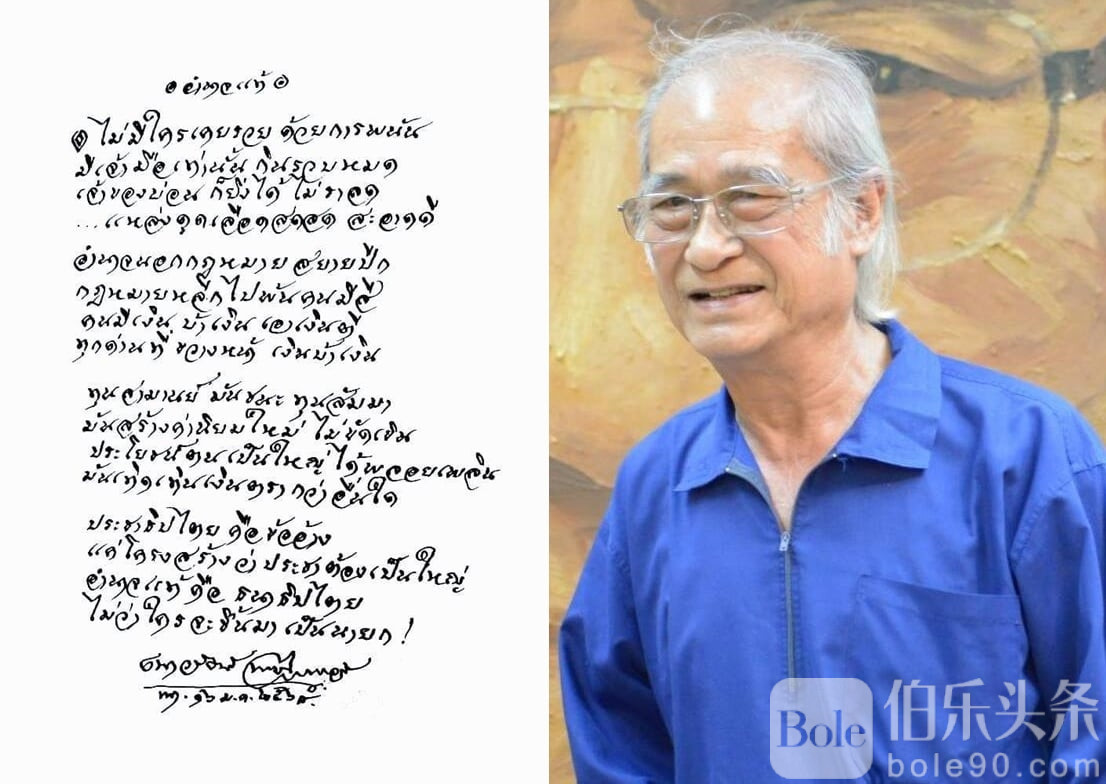 ๏ อำนาจแท้ ๏
๏ ไม่มีใครเคยรวย ด้วยการพนัน
มีเจ้ามือเท่านั้น กินรวบหมด
เจ้าของบ่อน ก็ยิ่งได้ ไม่ราลด
...แหล่งดูดเลือดสดสด สะอาดดี
อำนาจนอกกฎหมาย สยายปีก
กฎหมายหลีกไปพ้นคนมีสี
คนมีเงิน บ้าเงิน เอาเงินตี
ทุกด่านที่ ขวางหน้า เงินง้างเงิน
ทุนสามานย์ มันชนะ ทุนสัมมา
มันสร้างค่านิยมใหม่ ไม่ขัดเขิน
ประโยชน์ตนเป็นใหญ่ ได้พลอยเพลิน
มันเทิดเทินเงินตรา กว่า อื่นใด
ประชาธิปไตย คือข้ออ้าง
แค่โครงสร้างว่า ประชาต้องเป็นใหญ่
อำนาจแท้ คือ ธนาธิปไตย
ไม่ว่าใครจะขึ้นมา เป็นนายก !
เนาวรัตน์ พงษ์ไพบูลย์
Bole 伯乐头条
bole90.com